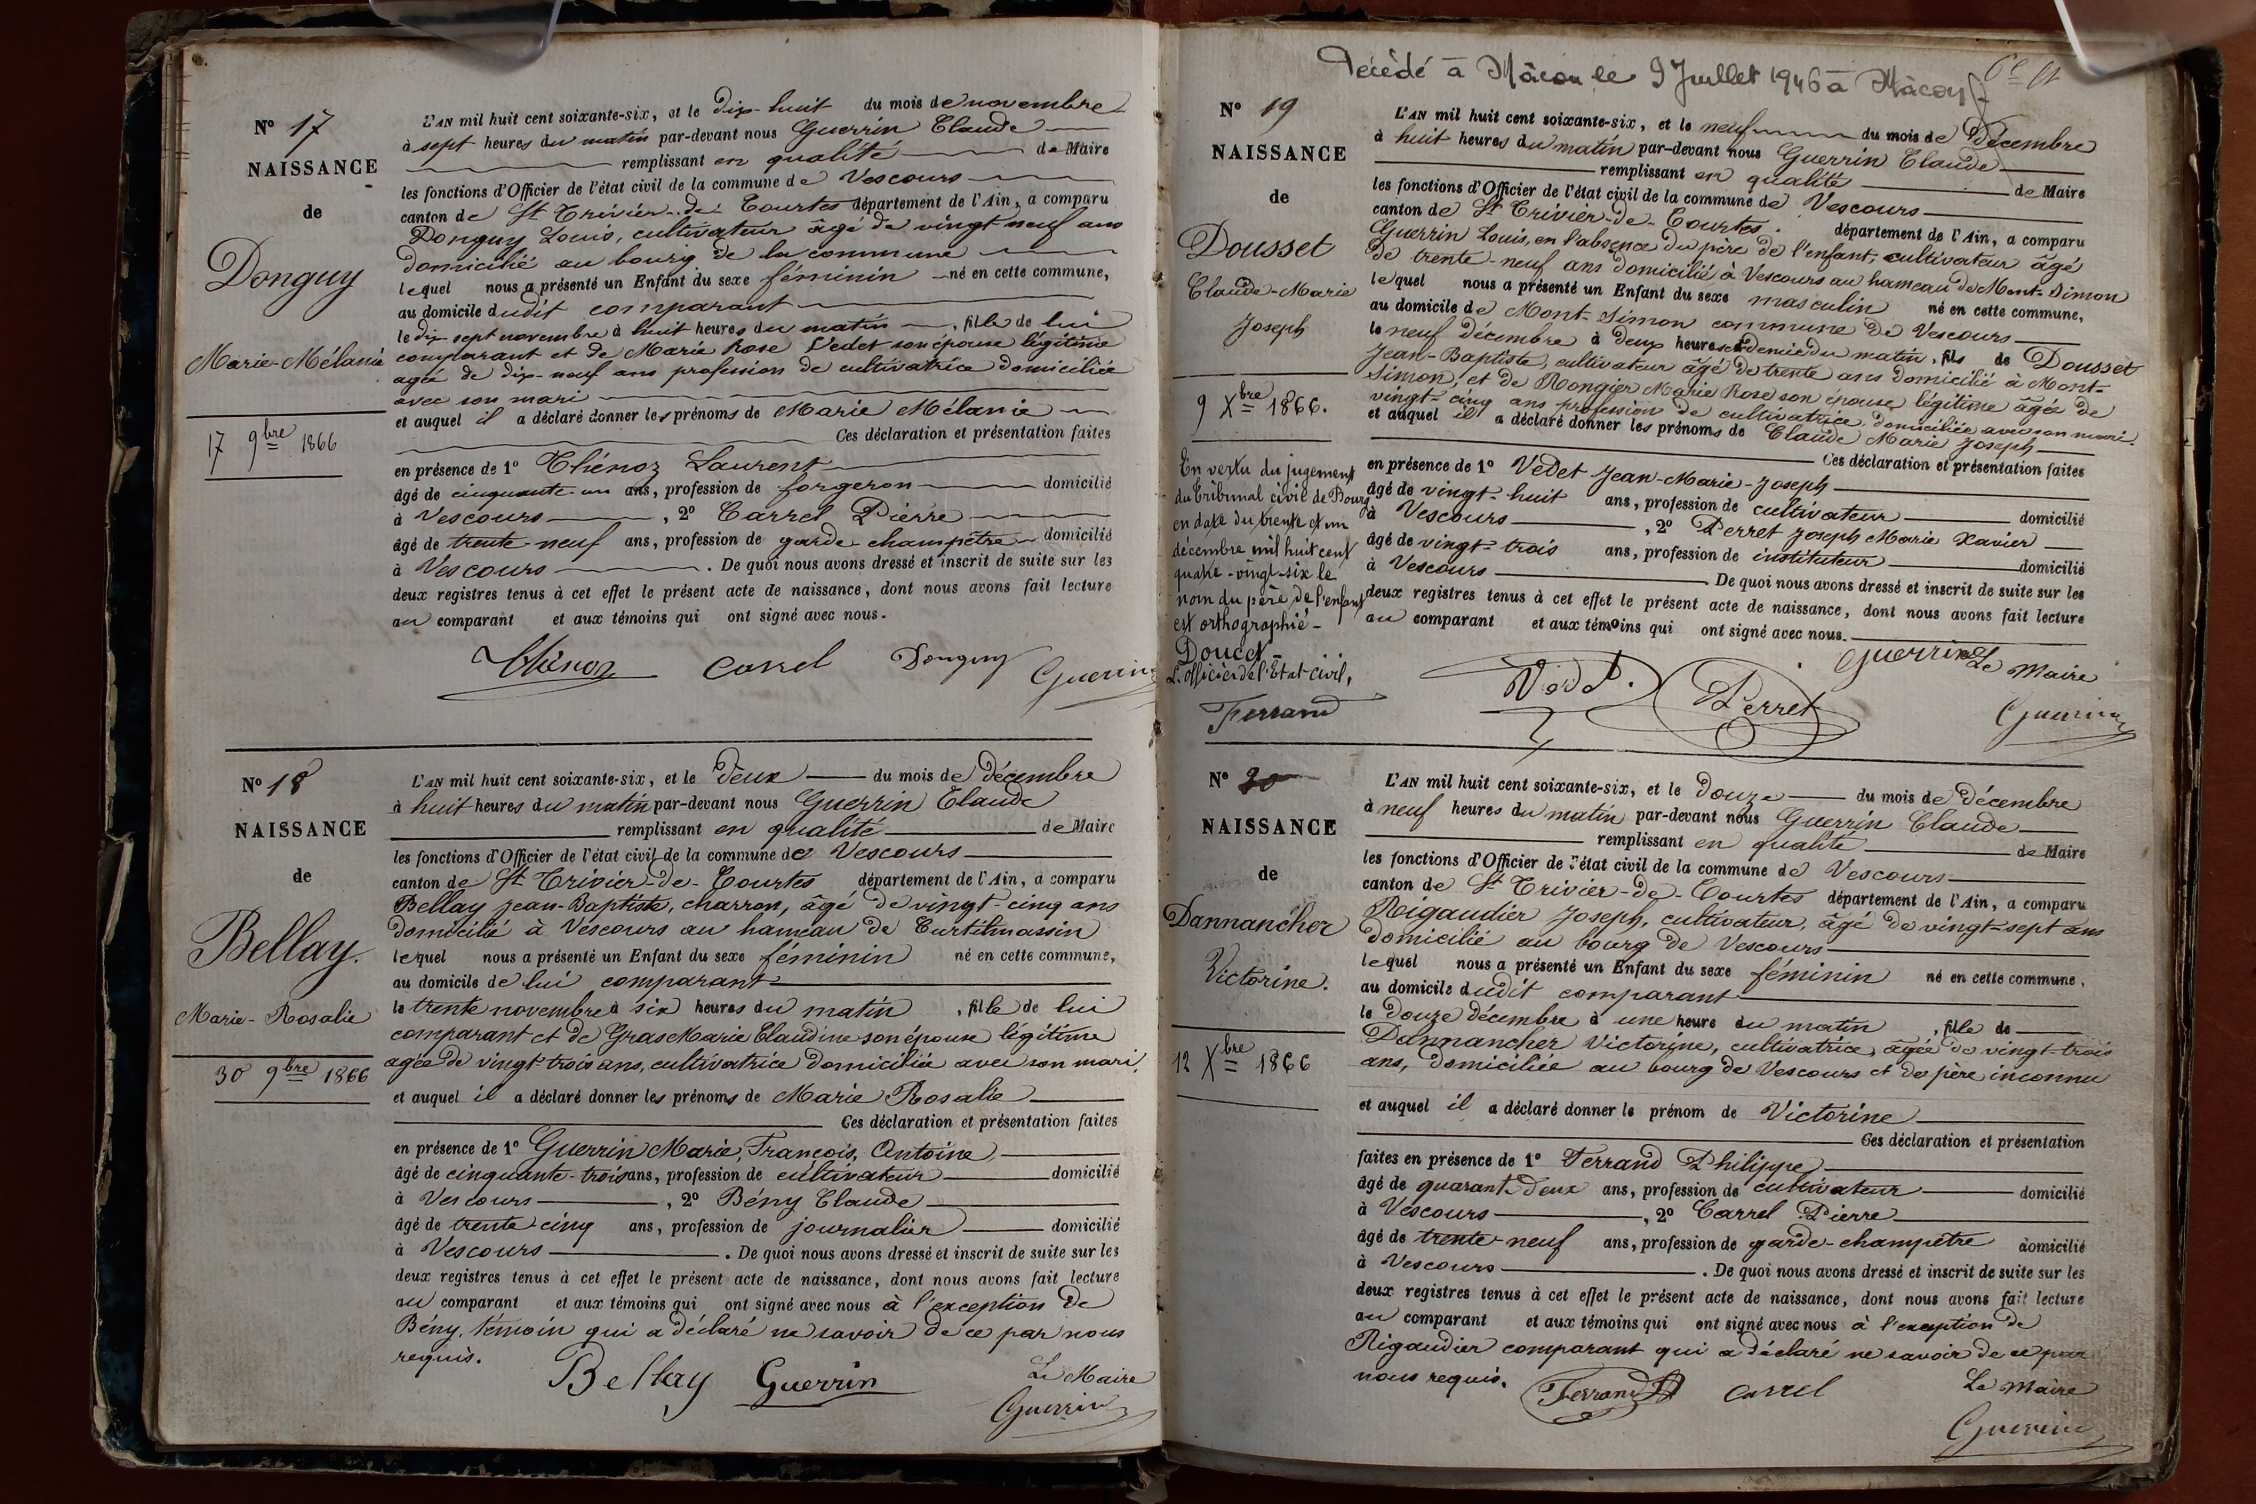 Nº 17
NAISSANCE
de
Donguy
Marie-Mélanie
17 9bre 1866
L'AN mil huit cent soixante-six, et le dix-huit du mois de novembre
à sept heures du matin par-devant nous Guerrin Claude
remplissant en qualité de Maire
les fonctions d'Officier de l'état civil de la commune de Vescours
canton de St Trivier-de-Courtes département de l'Ain, a comparu
Donguy Louis, cultivateur âgé de vingt neuf ans
domicilié au bourg de la commune
lequel nous a présenté un Enfant du sexe féminin né en cette commune,
au domicile dudit comparant
le dix-sept novembre à huit heures du matin, fille de lui
comparant et de Marie Rose Vedet son épouse légitime
agée de dix-neuf ans profession de cultivatrice domiciliée
avec son mari
et auquel il a déclaré donner les prénoms de Marie Mélanie
Ces déclaration et présentation faites
en présence de 1º Thénoz Laurent
âgé de cinquante-un ans, profession de forgeron domicilié
à Vescours, 2º Carrel Pierre
âgé de trente-neuf ans, profession de garde-champêtre domicilié
à Vescours. De quoi nous avons dressé et inscrit de suite sur les
deux registres tenus à cet effet le présent acte de naissance, dont nous avons fait lecture
au comparant et aux témoins qui ont signé avec nous.
Thénoz Carrel Donguy Guerrin
Nº 18
NAISSANCE
de
Bellay.
Marie-Rosalie
30 9bre 1866
L'AN mil huit cent soixante-six, et le deux du mois de décembre
à huit heures du matin par-devant nous Guerrin Claude
remplissant en qualité de Maire
les fonctions d'Officier de l'état civil de la commune de Vescours
canton de St Trivier-de-Courtes département de l'Ain, a comparu
Bellay Jean-Baptiste, charron, âgé de vingt-cinq ans
domicilié à Vescours au hameau de Curtilmassin
lequel nous a présenté un Enfant du sexe féminin né en cette commune,
au domicile de lui comparant
le trente novembre à six heures du matin, fille de lui
comparant et de Gras Marie Claudine son épouse légitime
agée de vingt-trois ans, cultivatrice domiciliée avec son mari,
et auquel il a déclaré donner les prénoms de Marie Rosalie
Ces déclaration et présentation faites
en présence de 1º Guerrin Marie, François, Antoine,
âgé de cinquante-trois ans, profession de cultivateur domicilié
à Vescours, 2º Bény Claude
âgé de trente-cinq ans, profession de journalier domicilié
à Vescours. De quoi nous avons dressé et inscrit de suite sur les
deux registres tenus à cet effet le présent acte de naissance, dont nous avons fait lecture
au comparant et aux témoins qui ont signé avec nous à l'exception de
Bény, témoin qui a déclaré ne savoir de ce par nous
requis.
Le Maire
Bellay Guerrin Guerrin
Décédé à Mâcon le 9 Juillet 1946 à Mâcon
Nº 19
NAISSANCE
de
Dousset
Claude-Marie
Joseph
9 Xbre 1866.
En vertu du jugement
du Tribunal civil de Bourg
en date du trente et un
décembre mil huit cent
quatre-vingt-six le
nom du père de l'enfant
est orthographié -
Doucet -
L'officier de l'Etat civil,
Ferrand
L'AN mil huit cent soixante-six, et le neuf du mois de Décembre
à huit heures du matin par-devant nous Guerrin Claude
remplissant en qualité de Maire
les fonctions d'Officier de l'état civil de la commune de Vescours
canton de St Trivier-de-Courtes. département de l'Ain, a comparu
Guerrin Louis, en l'absence du père de l'enfant, cultivateur âgé
de trente-neuf ans domicilié à Vescours au hameau de Mont-Simon
lequel nous a présenté un Enfant du sexe masculin né en cette commune,
au domicile de Mont-Simon commune de Vescours
le neuf décembre à deux heures et demie du matin, fils de Dousset
Jean-Baptiste, cultivateur âgé de trente ans domicilié à Mont-
Simon, et de Rongier Marie Rose son épouse légitime âgée de
vingt-cinq ans profession de cultivatrice domiciliée avec son mari.
et auquel il a déclaré donner les prénoms de Claude Marie Joseph
Ces déclaration et présentation faites
en présence de 1º Vedet Jean-Marie-Joseph
âgé de vingt-huit ans, profession de cultivateur domicilié
à Vescours, 2º Perret Joseph Marie Xavier
âgé de vingt-trois ans, profession de instituteur domicilié
à Vescours De quoi nous avons dressé et inscrit de suite sur les
deux registres tenus à cet effet le présent acte de naissance, dont nous avons fait lecture
au comparant et aux témoins qui ont signé avec nous.
Guerrin Le Maire
Vedet. Perret Guerrin
Nº 20
NAISSANCE
de
Dannancher
Victorine.
12 Xbre 1866
L'AN mil huit cent soixante-six, et le douze du mois de décembre
à neuf heures du matin par-devant nous Guerrin Claude
remplissant en qualité de Maire
les fonctions d'Officier de l'état civil de la commune de Vescours
canton de St Trivier-de-Courtes département de l'Ain, a comparu
Rigaudier Joseph, cultivateur, âgé de vingt-sept ans
domicilié au bourg de Vescours
lequel nous a présenté un Enfant du sexe féminin né en cette commune,
au domicile dudit comparant
le douze décembre à une heure du matin, fille de
Dannancher Victorine, cultivatrice, âgée de vingt-trois
ans, domiciliée au bourg de Vescours et de père inconnu
et auquel il a déclaré donner le prénom de Victorine
Ces déclaration et présentation
faites en présence de 1º Ferrand Philippe
âgé de quarante-deux ans, profession de cultivateur domicilié
à Vescours, 2º Carrel Pierre
âgé de trente-neuf ans, profession de garde-champêtre domicilié
à Vescours. De quoi nous avons dressé et inscrit de suite sur les
deux registres tenus à cet effet le présent acte de naissance, dont nous avons fait lecture
au comparant et aux témoins qui ont signé avec nous à l'exception de
Rigaudier comparant qui a déclaré ne savoir de ce par
nous requis.
Le Maire
Ferrand Carrel Guerrin